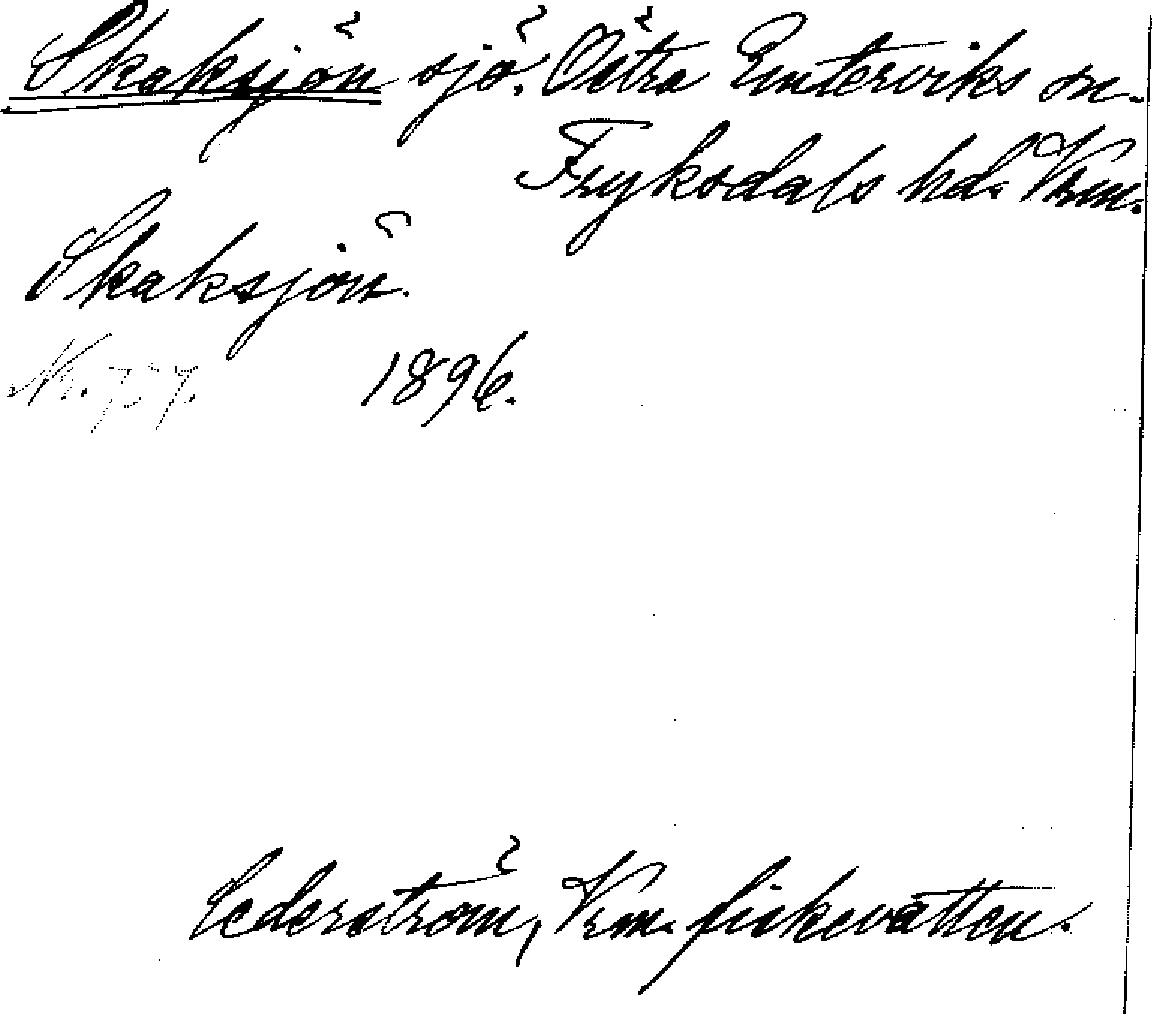 Skaksjön sjö. Östra Emterviks sn.
Fryksdals hd. Vrm.
Skaksjön.
Nr. 757. 1896.
Cederström, Vrm. fiskevatten.